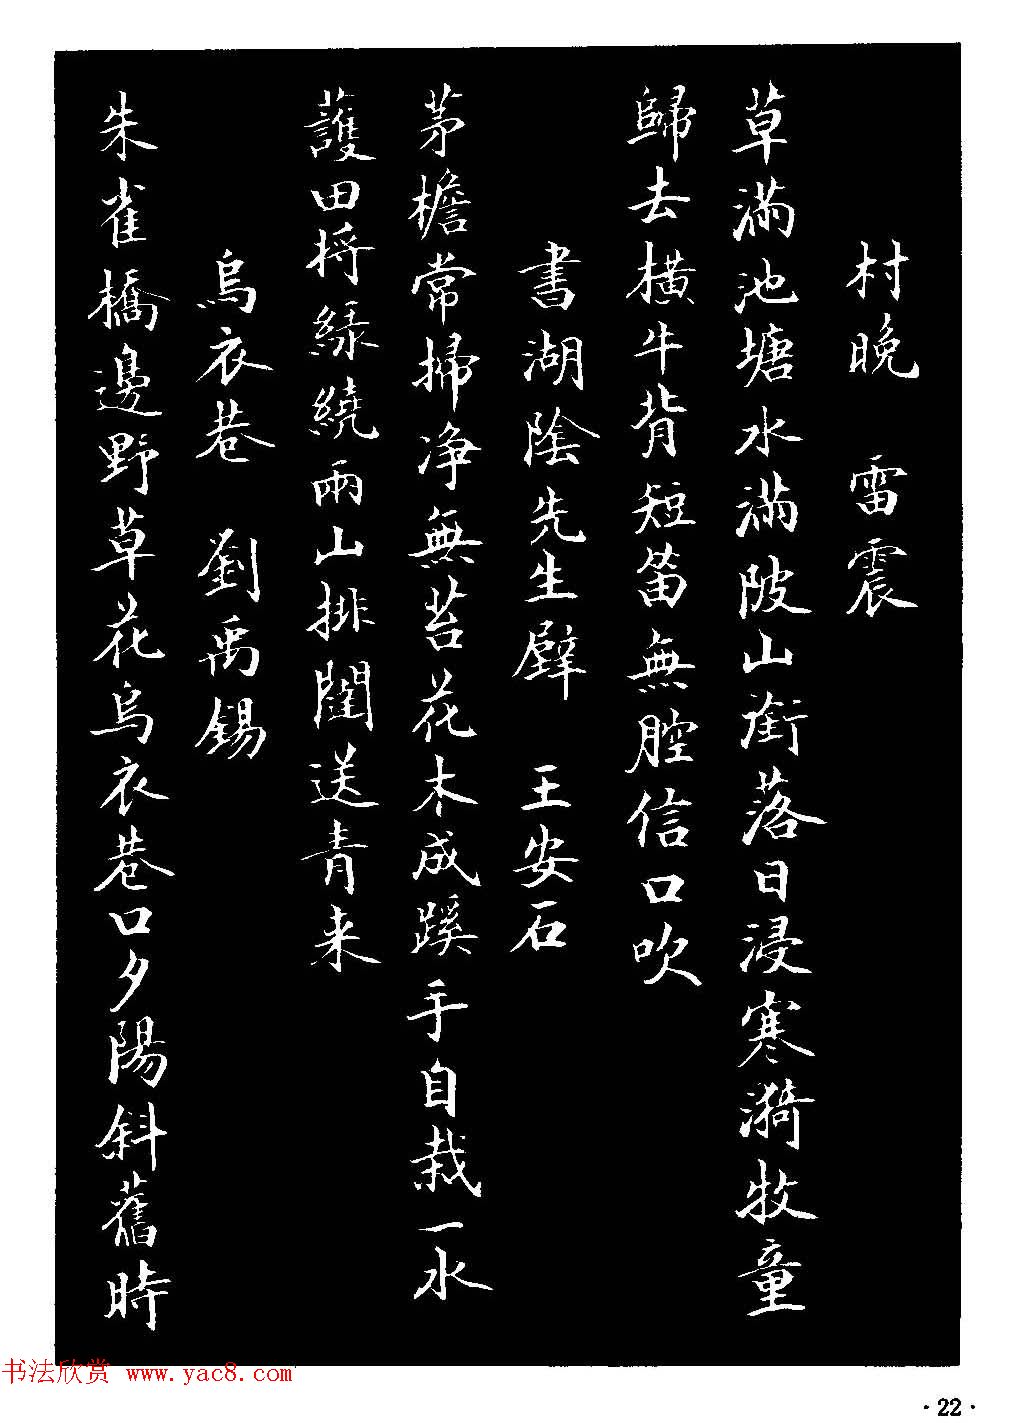 村晚 雷震
草滿池塘水滿陂山銜落日浸寒漪牧童
歸去橫牛背短笛無腔信口吹
書湖陰先生壁 王安石
茅檐常掃净無苔花木成蹊手自栽一水
護田將緑繞兩山排闥送青来
烏衣巷 劉禹錫
朱雀橋邊野草花烏衣巷口夕陽斜舊時
书法欣赏 www.yac8.com
·22·